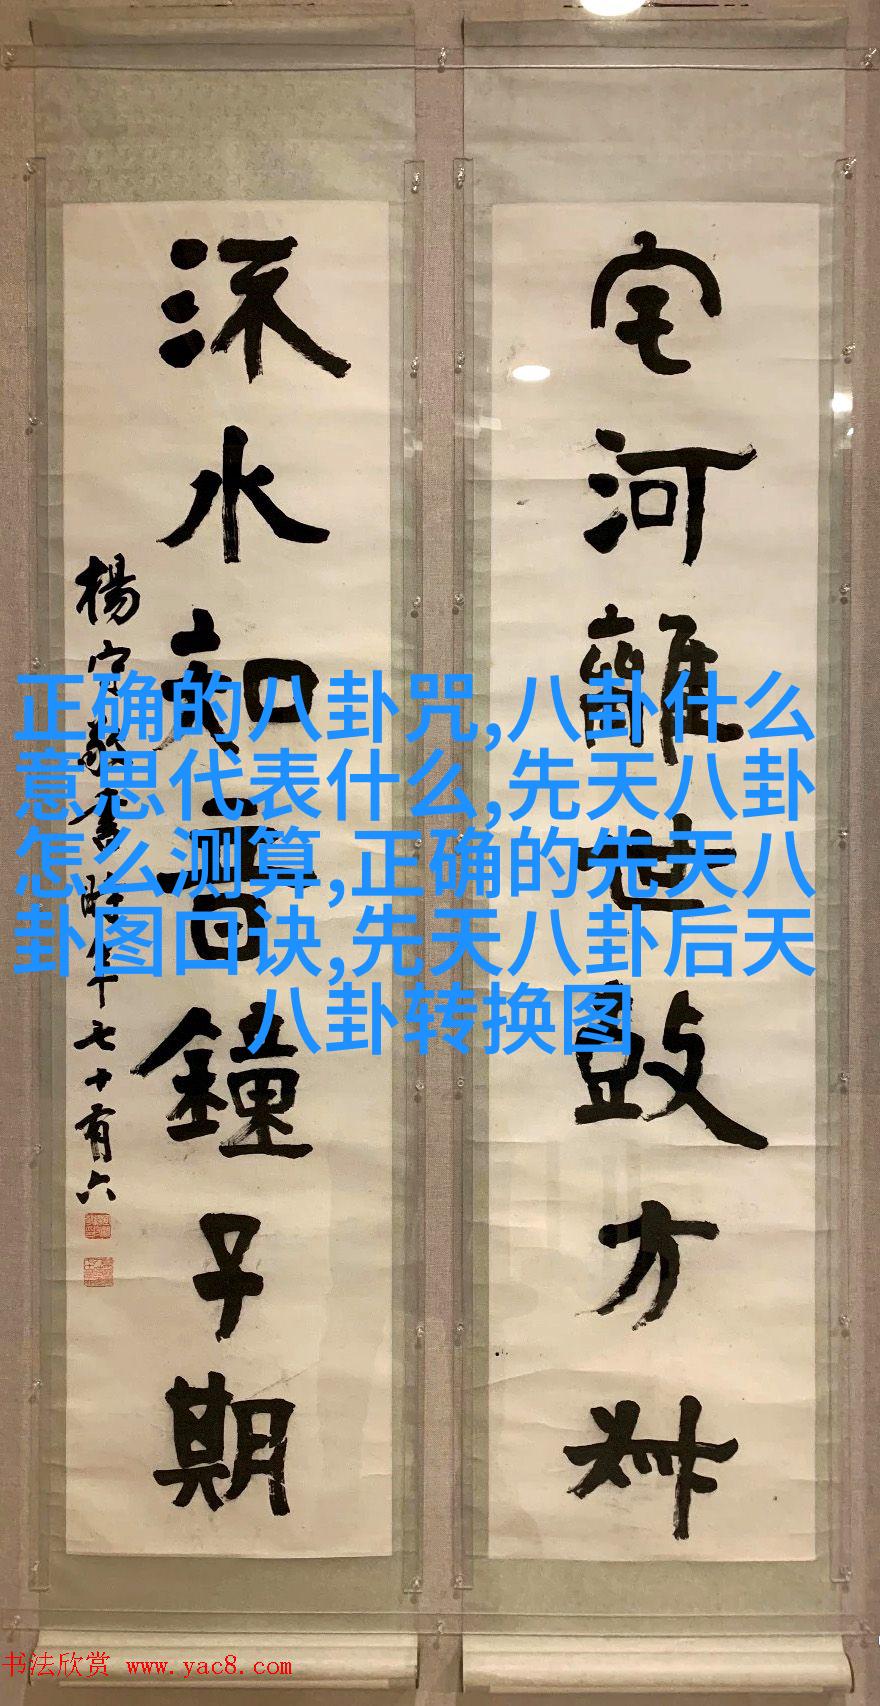 宅河離世鼓方叔
流水知音鐘子期
楊守敬書時年七十有六
正确的八卦咒,八卦什么
意思代表什么,先天八卦
怎么测算,正确的先天八
卦图口诀,先天八卦后天
八卦转换图
书法欣赏 www.yac8.com